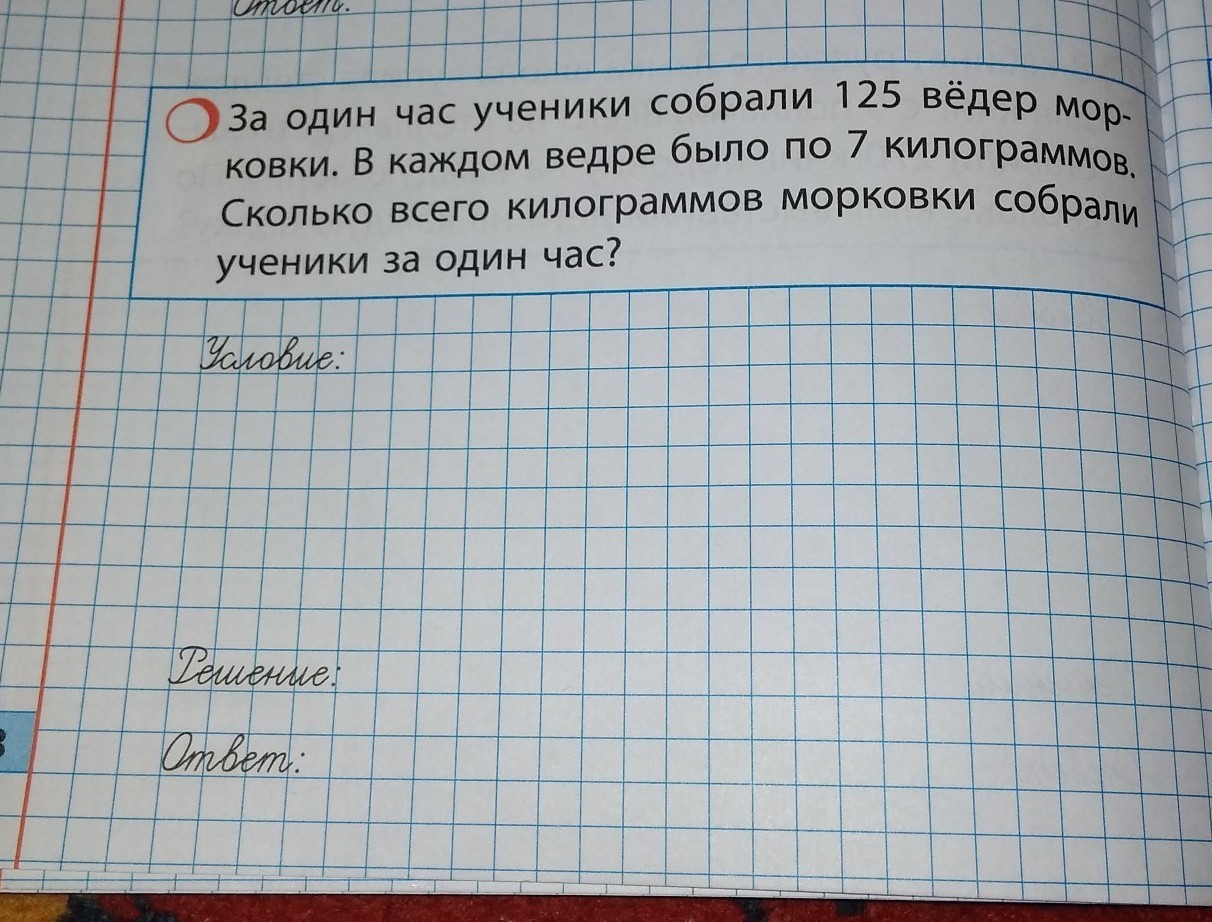 Ответ:
За один час ученики собрали 125 вёдер мор-
ковки. В каждом ведре было по 7 килограммов.
Сколько всего килограммов морковки собрали
ученики за один час?
Условие:
Решение:
Ответ: